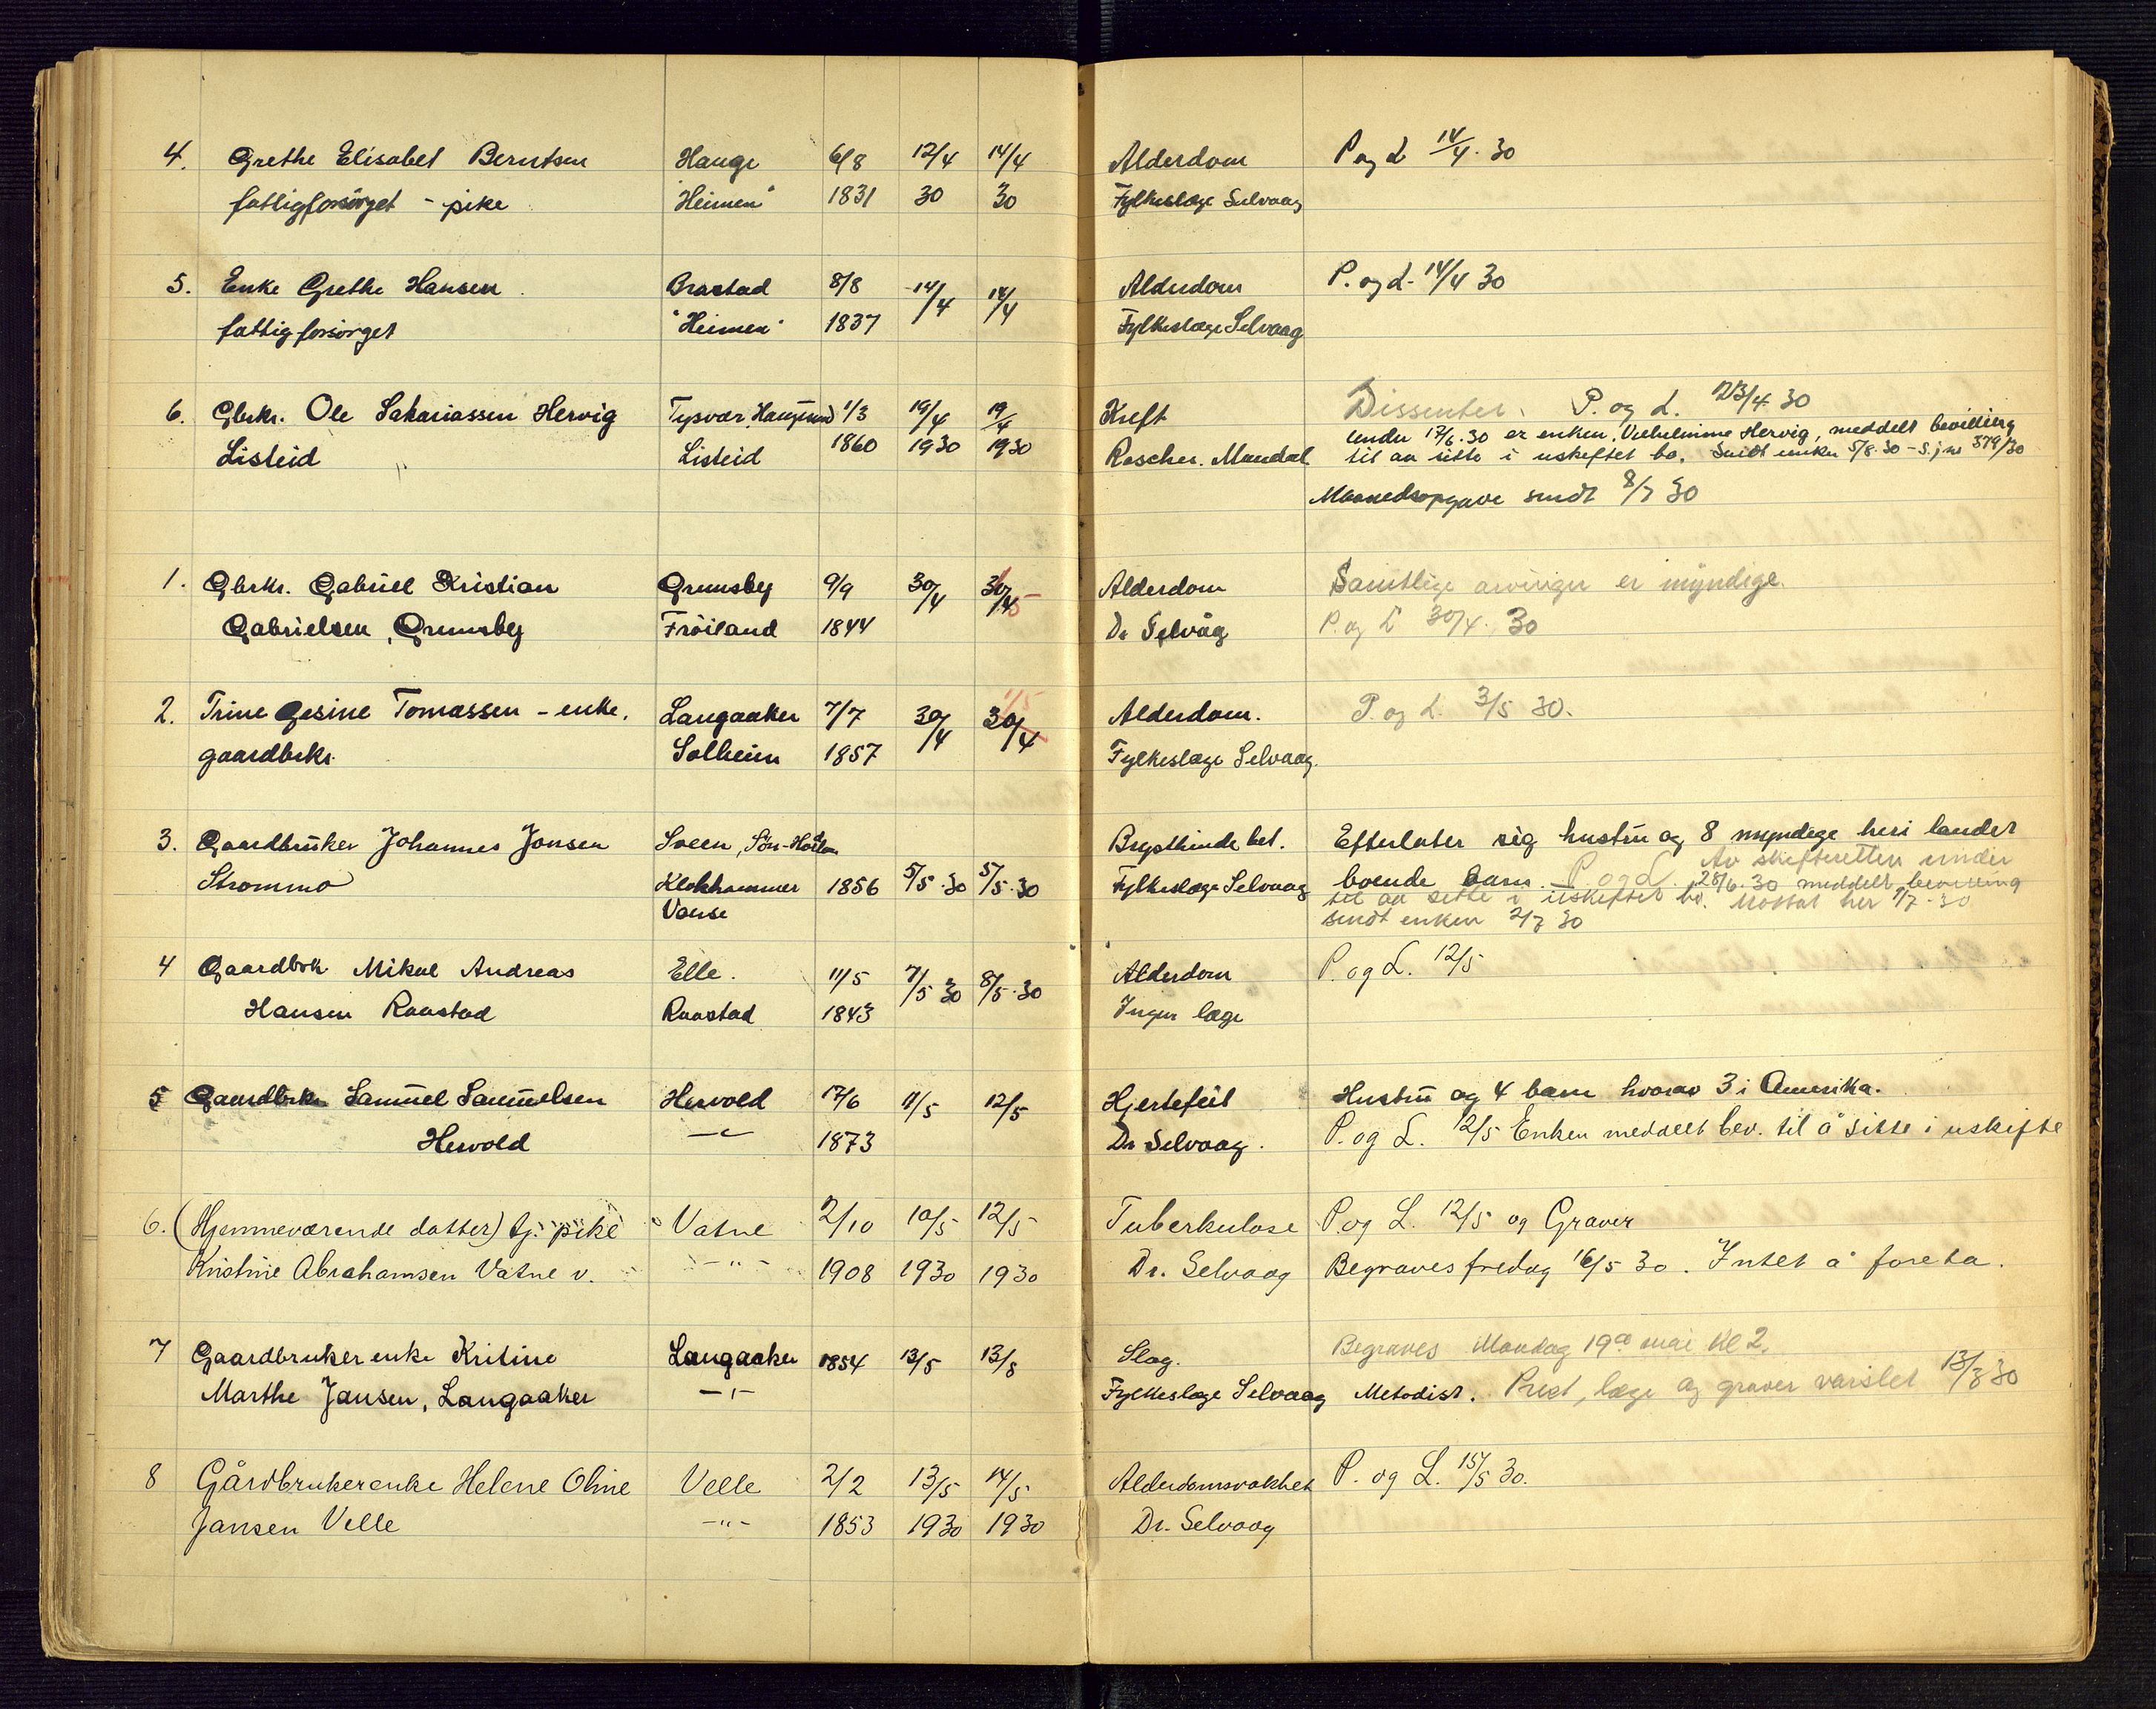 4. Grethe Elisabet Berntsen Hauge 6/8 12/4 14/4 Alderdom P og L 14/4. 30
fattigforsörget - pike "Heimen" 1831 30 30 Fylkeslæge Selvaag
5. Enke Grethe Hansen Brastad 8/8 14/4 14/4 Alderdom P. og L. 14/4 30
fattigforsörget "Heimen" 1837 Fylkeslæge Selvaag
6. Gbrkr. Ole Sakariassen Hervig Tysvær, Haugesund 1/3 19/4 19/4 Kreft Dissenter. P. og L. 23/4 30
Listeid Listeid 1860 1930 1930 Rascher. Mandal under 17/6.30 er enken, Vilhelmine Hervig, meddelt bevilling
til aa sitte i uskiftet bo. Sendt enken 5/8.30 - S.j nr 379/30
Maanedsopgave sendt 8/7 30
1. Gbrkr. Gabriel Kristian Ormsby 9/9 30/4 30/4 5 Alderdom Samtlige arvinger er myndige.
Gabrielsen, Ormsby Fröiland 1844 Dr Selvåg P. og L 30/4. 30
2. Trine Gesine Tomassen - enke. Langaaker 7/7 30/4 30/4 1/5 Alderdom. P. og L. 3/5 30.
gaardbrkr. Solheim 1857 Fylkeslæge Selvaag.
3. Gaardbruker Johannes Jonsen Sveen, Sön-Hordan Brysthindebet. Efterlater sig hustru og 8 myndige heri landet
Strømmo Klokhammer 1856 5/5.30 5/5.30 Fylkeslæge Selvaag boende barn. P og L. Av skifteretten under
Vanse 28/6.30 meddelt bevilling
til aa sitte i uskiftet bo. Mottat her 1/7-30
sendt enken 2/7 30
4 Gaardbrk Mikal Andreas Elle. 11/5 7/5 30 8/5.30 Alderdom P. og L. 12/5
Hansen Raastad Raastad 1843 Ingen læge
5 Gaardbrk Samuel Samuelsen Hervold 17/6 11/5 12/5 Hjertefeil Hustru og 4 barn hvorav 3 i Amerika.
Hervold -"- 1873 Dr Selvaag. P. og L. 12/5 Enken meddelt bev. til å sitte i uskifte
6. (Hjemmeværende datter) tj. pike Vatne 2/10 10/5 12/5 Tuberkulose P. og L. 12/5 og Graver
Kristine Abrahamsen Vatne v. -"- 1908 1930 1930 Dr. Selvaag Begraves fredag 16/5 30. Intet å foreta.
7 Gaardbruker enke Kritine Langaaker 1854 13/5 13/5 Slag. Begraves Mandag 19de mai kl 2.
Marthe Jansen, Langaaker -"- Fylkeslæge Selvaag Metodist. Prest, læge og graver varslet 13/5 30
8 Gårdbrukerenke Helene Oline Velle 2/2 13/5 14/5 Alderdomsvakhet P. og L. 15/5 30.
Jansen Velle -"- 1853 1930 1930 Dr. Selvaag